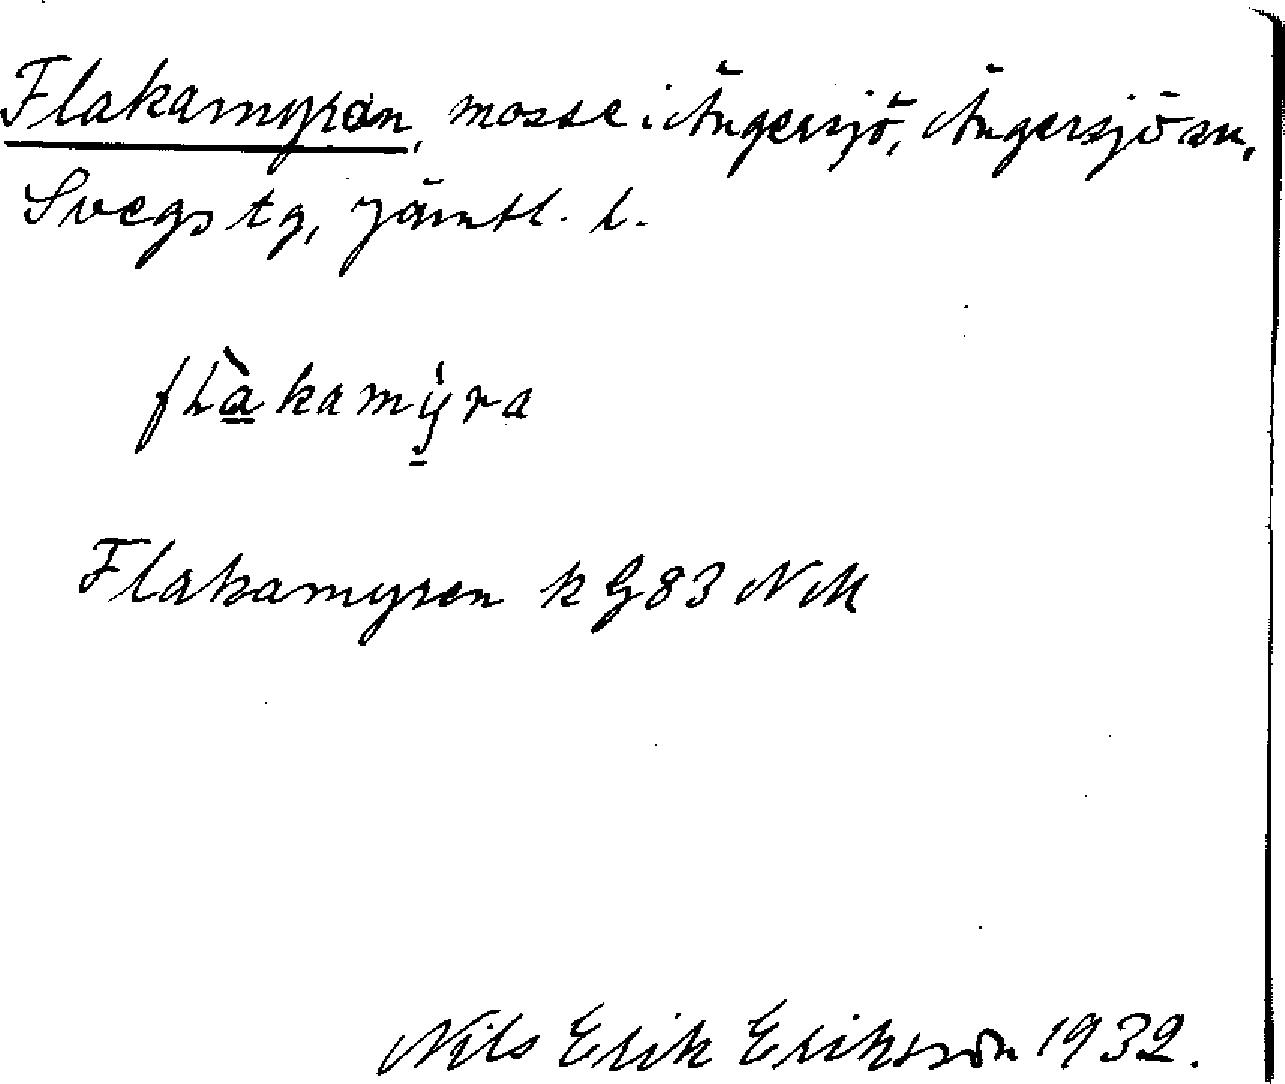 Flakamyran, mosse i Ängersjö, Ängersjö sn,
Svegs tg, Jämtl. l.
fʟà̲kamy̲̍ra
Flakamyren k G83 NM
Nils Erik Eriksson 1932.